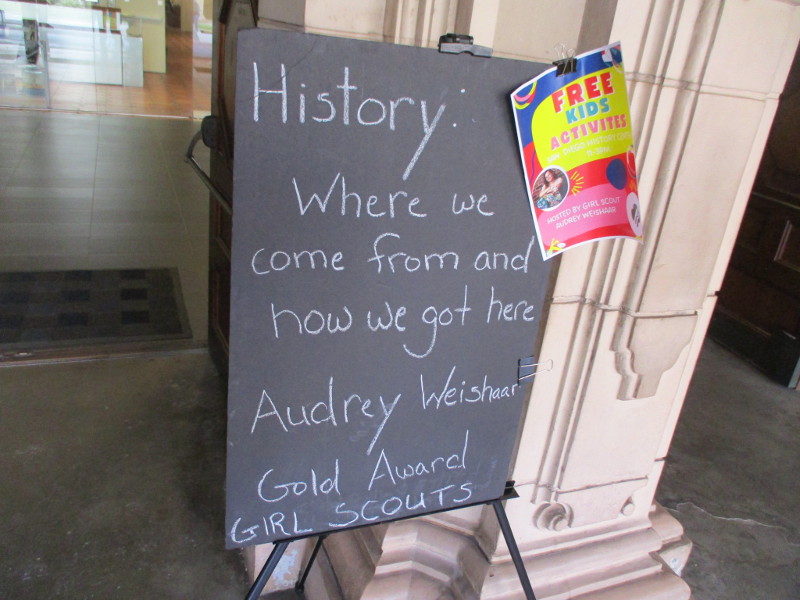 History:
Where we
come from and
how we got here
Audrey Weishaar
Gold Award
GIRL SCOUTS
FREE
KIDS
ACTIVITES
SAN DIEGO HISTORY
HOSTED BY GIRL SCOUT
AUDREY WEISHAAR